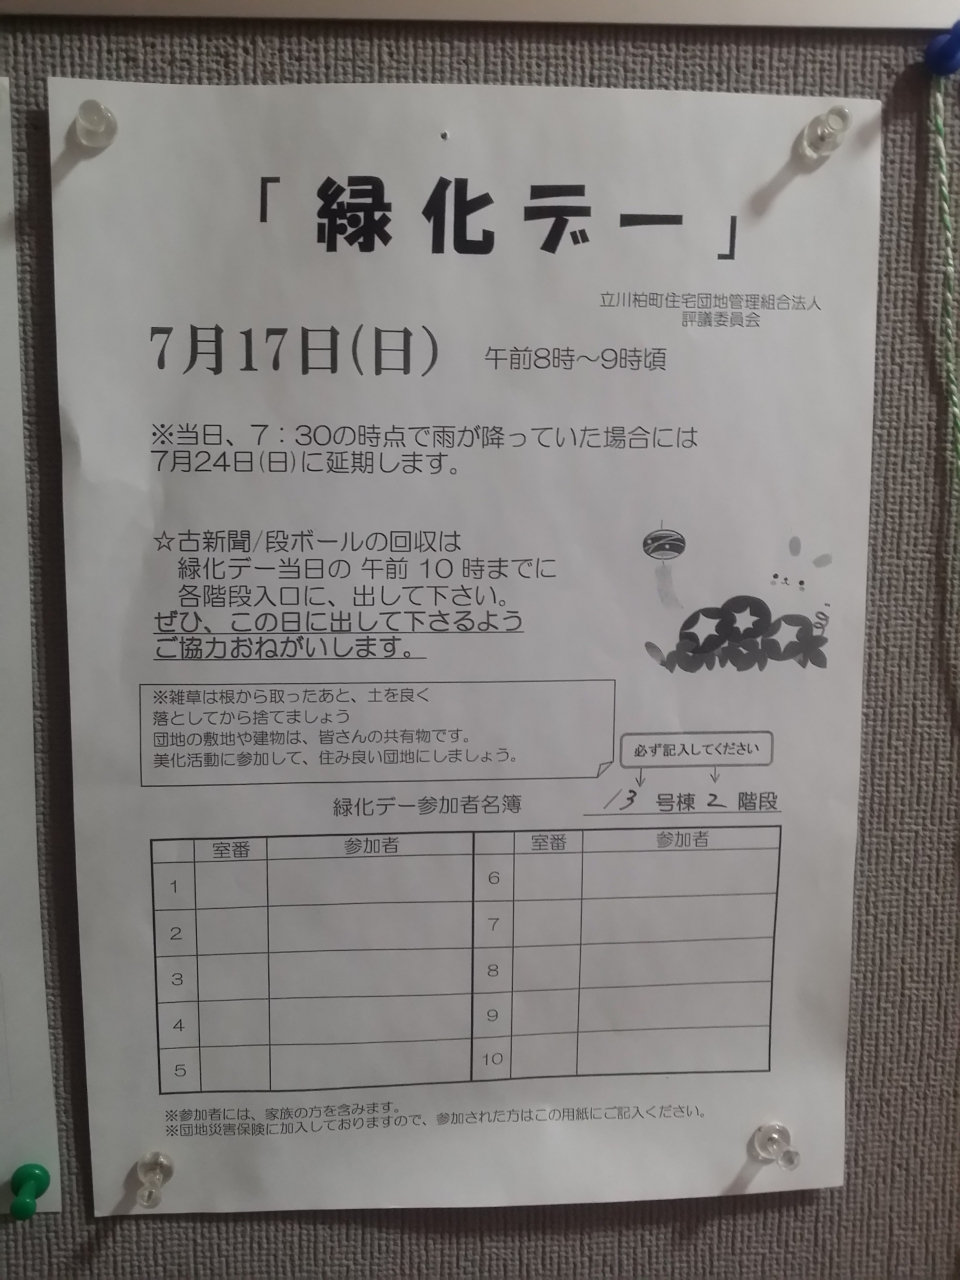 「緑化デー」
立川柏町住宅団地管理組合法人
評議委員会
7月17日(日) 午前8時～9時頃
※当日、7：30の時点で雨が降っていた場合には
7月24日(日)に延期します。
☆古新聞/段ボールの回収は
緑化デー当日の 午前 10 時までに
各階段入口に、出して下さい。
ぜひ、この日に出して下さるよう
ご協力おねがいします。
※雑草は根から取ったあと、土を良く
落としてから捨てましょう
団地の敷地や建物は、皆さんの共有物です。
美化活動に参加して、住み良い団地にしましょう。
必ず記入してください
緑化デー参加者名簿 13 号棟 2 階段
室番 参加者 室番 参加者
1 6
2 7
3 8
4 9
5 10
※参加者には、家族の方を含みます。
※団地災害保険に加入しておりますので、参加された方はこの用紙にご記入ください。